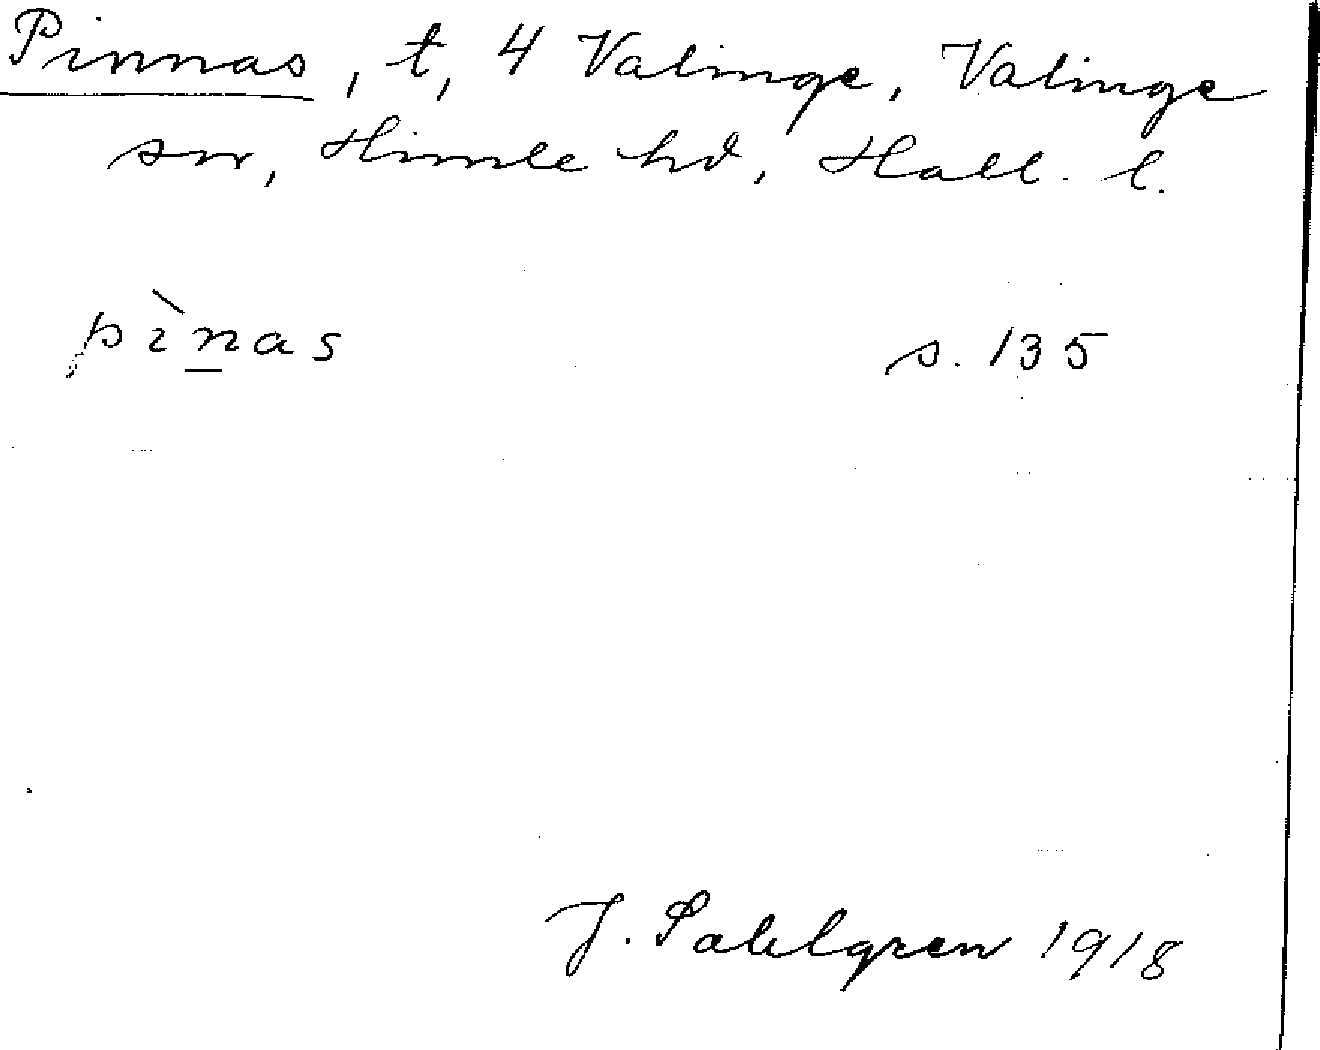 Pinnas, t, 4 Valinge, Valinge
sn, Himle hd, Hall. l.
pìn̲as s. 135
J. Sahlgren 1918